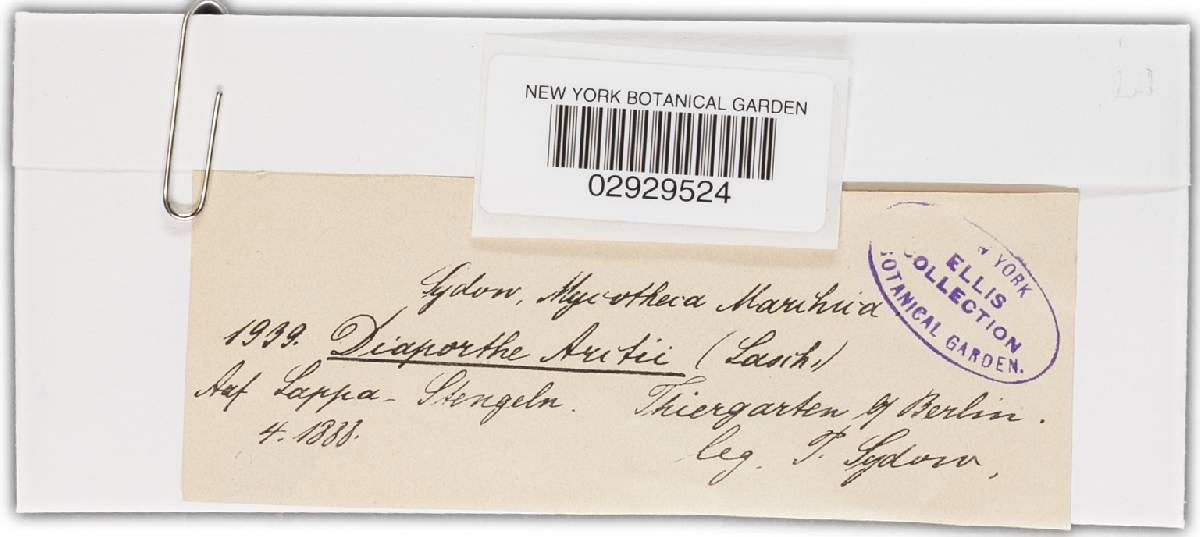 NEW YORK BOTANICAL GARDEN
02929524
W YORK
ELLIS
COLLECTION
BOTANICAL GARDEN.
Sydow, Mycotheca Marchica
1939. Diaporthe Arctii (Lasch.)
Auf Lappa-Stengeln. Thiergarten b/ Berlin.
4. 1888.
leg. P. Sydow,